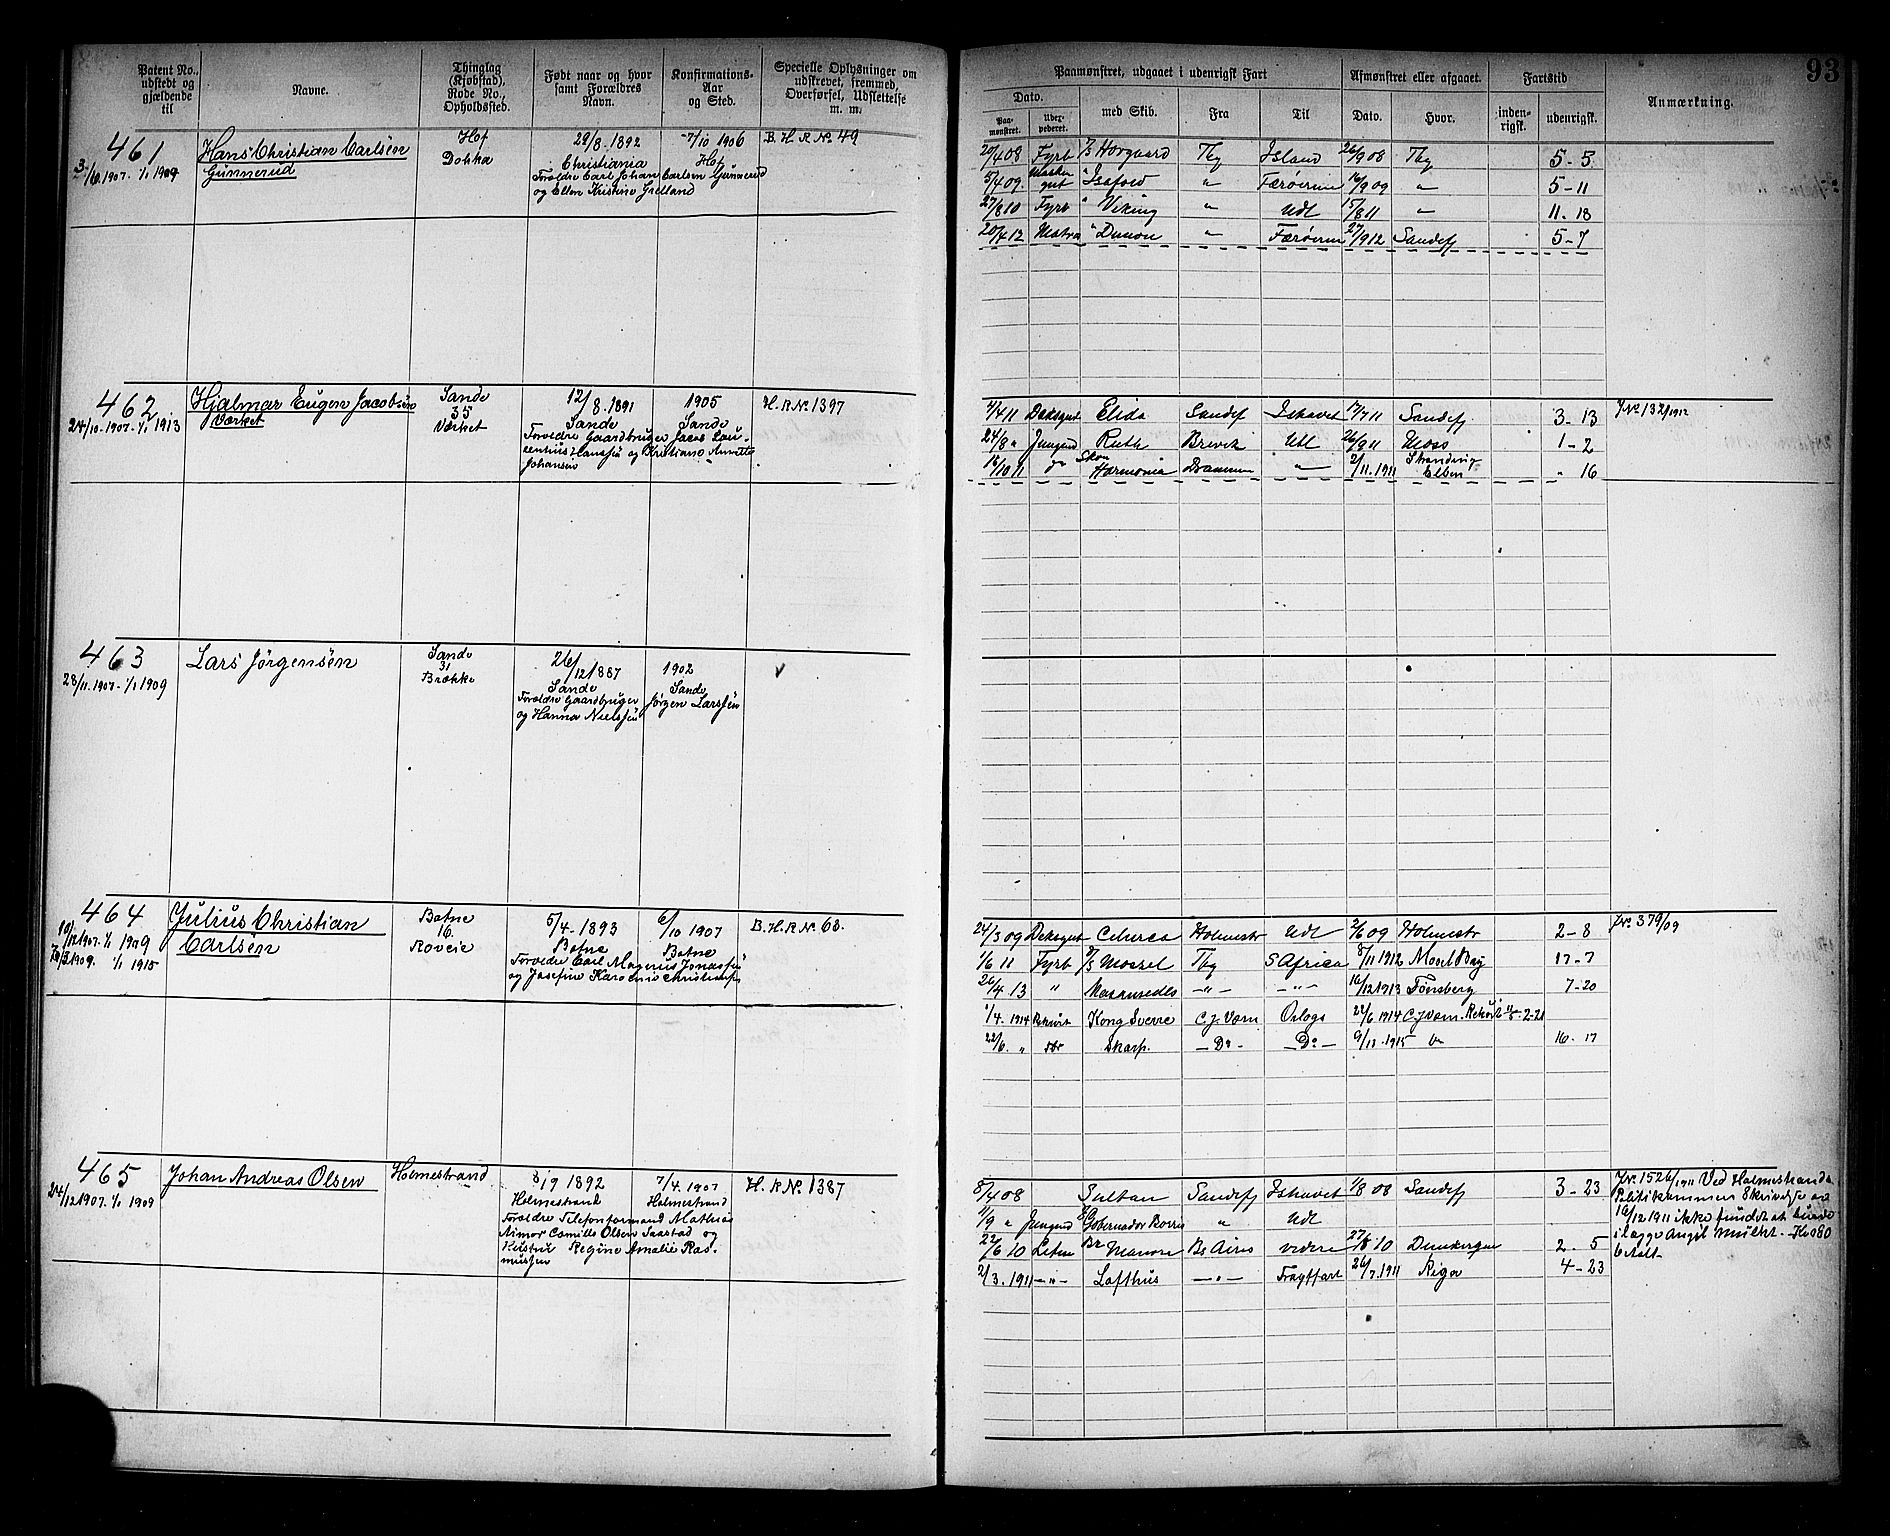 93
Patent No., udstedt og gjældende til
Navne.
Thinglag (Kjøbstad), Rode No., Opholdssted.
Født naar og hvor samt Forældres Navn.
Konfirmations-Aar og Sted.
Specielle Oplysninger om udskrevet, fremmed, Overførsel, Udslettelse m. m.
Paamønstret, udgaaet i udenrigsk Fart
Afmønstret eller afgaaet.
Fartstid
Anmærkning.
Dato.
med Skib.
Fra
Til
Dato.
Hvor.
inden-rigsk.
udenrigsk.
Paa-mønstret.
461
3/10.1907. 1/1 1909
Hans Christian Carlsen
Gunnerud
Hof
Dokka
29/8.1892
Christiania
Forældre Carl Johan Carlsen Gunnerud
og Ellen Kristine Grelland
7/10 1906
Hof
B. H. R No 49
20/4 08 Fyrb Horgaard Tbg Island 26/9 08 Tbg 5-5
5/4 09. Isafold " Færøerne 16/9 09 " 5-11
27/8 10 Fyrb " Viking " Udl 15/8 11 " 11.18
20/4 12 Matros " " Færøerne 27/9 12 Sandefj 5-7
462
24/10.1907. 1/1 1913
Hjalmar Eugen Jacobsen
Værket
Sande
35
Værket
12/8.1891
Sande
Forældre Gaardbruger Jacob Lau-
rentius Hanssen og Kristiane Annette
Johansen
1905
Sande
H. R No 1397
1/4 11 Dæksgut Elida Sandef Ishavet 17/7 11 Sandefj 3-13
24/8 " Jungmd Ruth Brevik Udl 26/9 11 Moss 1-2
16/10 11 do Skon Harmonia Drammen " 2/11.1911 Stranding Elben " 16
J.No 132/1912
463
28/11.1907. 1/1 1909
Lars Jørgensen
Sande
31
Brække
26/12 1887
Sande
Forældre Gaardbruger Jørgen Larssen
og Hanna Nielssen
1902
Sande
464
10/12 1907. 1/1 1909
1/1 1915
Julius Christian
Carlsen
Botne
16.
Roveie
5/4.1893
Botne
Forældre Carl Magnus Jonassen
og Josefine Karoline Christensen
6/10 1907
Botne
B. H. R No 68.
24/3 09 Dæksgut Holmestr Udl 2/6 09 Holmestr 2-8
1/6 11 Fyrb Tbg S Africa 8/11 1912 Mosel Bay 17-7
26/4 13 " -"- -"- 16/12 1913 Tønsberg 7-20
1/4. 1914 Kong Sverre C. J. Værn Orlogs 22/6 1914 C. J. Værn.
22/6. " Skarp. -Do- -Do- 9/11.1915 16.17
J.No 379/09
465
24/12 1907. 1/1 1909
Johan Andreas Olsen
Holmestrand
8/9 1892
Holmestrand
Forældre Telefonformand Mathias
Aimar Camillo Olsen Saastad og
Hustru Regine Amalie Ras-
mussen
7/4.1907
Holmestrand
H. R No 1387
8/4 08 Sultan Sandefj Ishavet 1/8 08 Sandefj 3-23
11/9 " Jungmd Gobernador Borris " Udl
22/6 10 Letm Br Manora Bs Aires videre Dunkerque 2-5
2/3.1911 -"- Lofthus -"- Fragtfart 26/7.1911 Riga 4-23
J.No 1526/1911 Ved Holmestrands
Politikammers Skrivelse av
16/12 1911 ikke fundet at burde
ilægge Angjl mulkt.
betalt